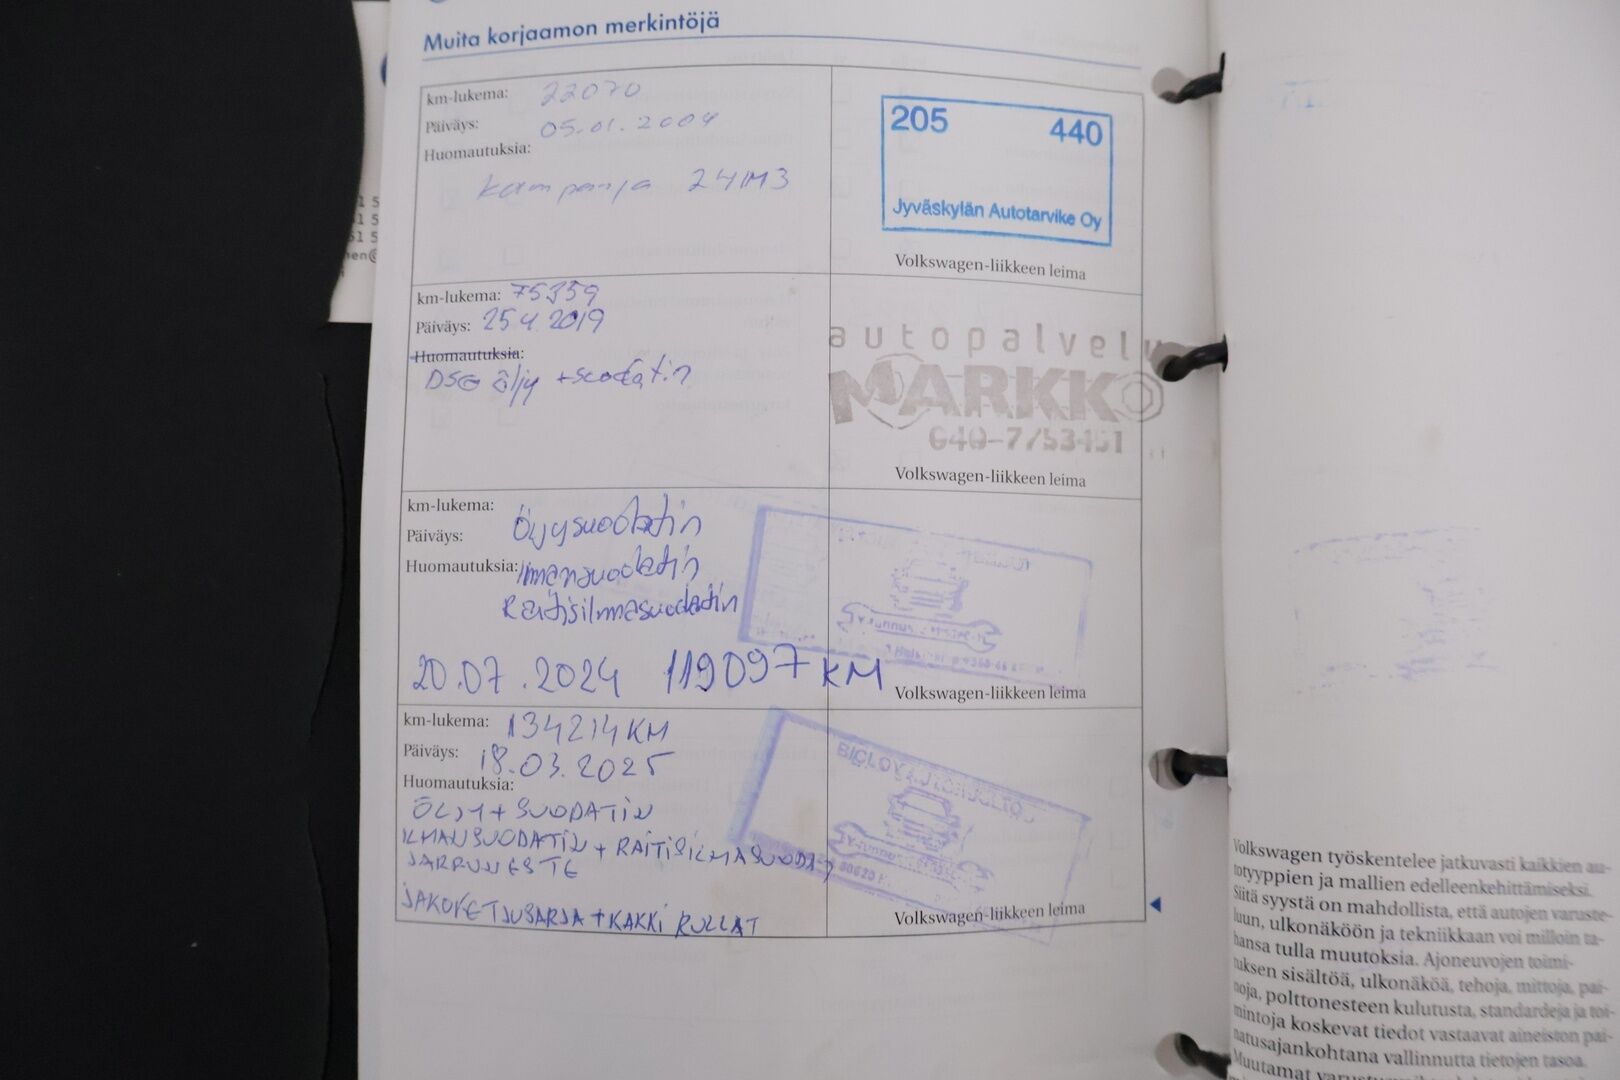 Muita korjaamon merkintöjä
km-lukema: 22070
Päiväys: 05.01.2004
Huomautuksia:
kampanja 24M3
205 440
Jyväskylän Autotarvike Oy
Volkswagen-liikkeen leima
km-lukema: 75359
Päiväys: 25.4.2019
Huomautuksia:
DSG öljy + suodatin
autopalvelu
MARKKO
Volkswagen-liikkeen leima
km-lukema:
Päiväys:
Huomautuksia:
Öljysuodatin
Ilmansuodatin
Raitisilmasuodatin
20.07.2024 119097 KM
Volkswagen-liikkeen leima
km-lukema: 134214 KM
Päiväys: 18.03.2025
Huomautuksia:
ÖLJY + SUODATIN
ILMANSUODATIN + RAITISILMASUODAT
JARRUNESTE
JAKOKETJUSARJA + KAKKI RULLAT
Volkswagen-liikkeen leima
Volkswagen työskentelee jatkuvasti kaikkien au-
totyyppien ja mallien edelleenkehittämiseksi.
Siitä syystä on mahdollista, että autojen varuste-
luun, ulkonäköön ja tekniikkaan voi milloin ta-
hansa tulla muutoksia. Ajoneuvojen toimi-
tuksen sisältöä, ulkonäköä, tehoja, mittoja, pai-
noja, polttonesteen kulutusta, standardeja ja toi-
mintoja koskevat tiedot vastaavat aineiston pai-
natusajankohtana vallinnutta tietojen tasoa.
Muutamat